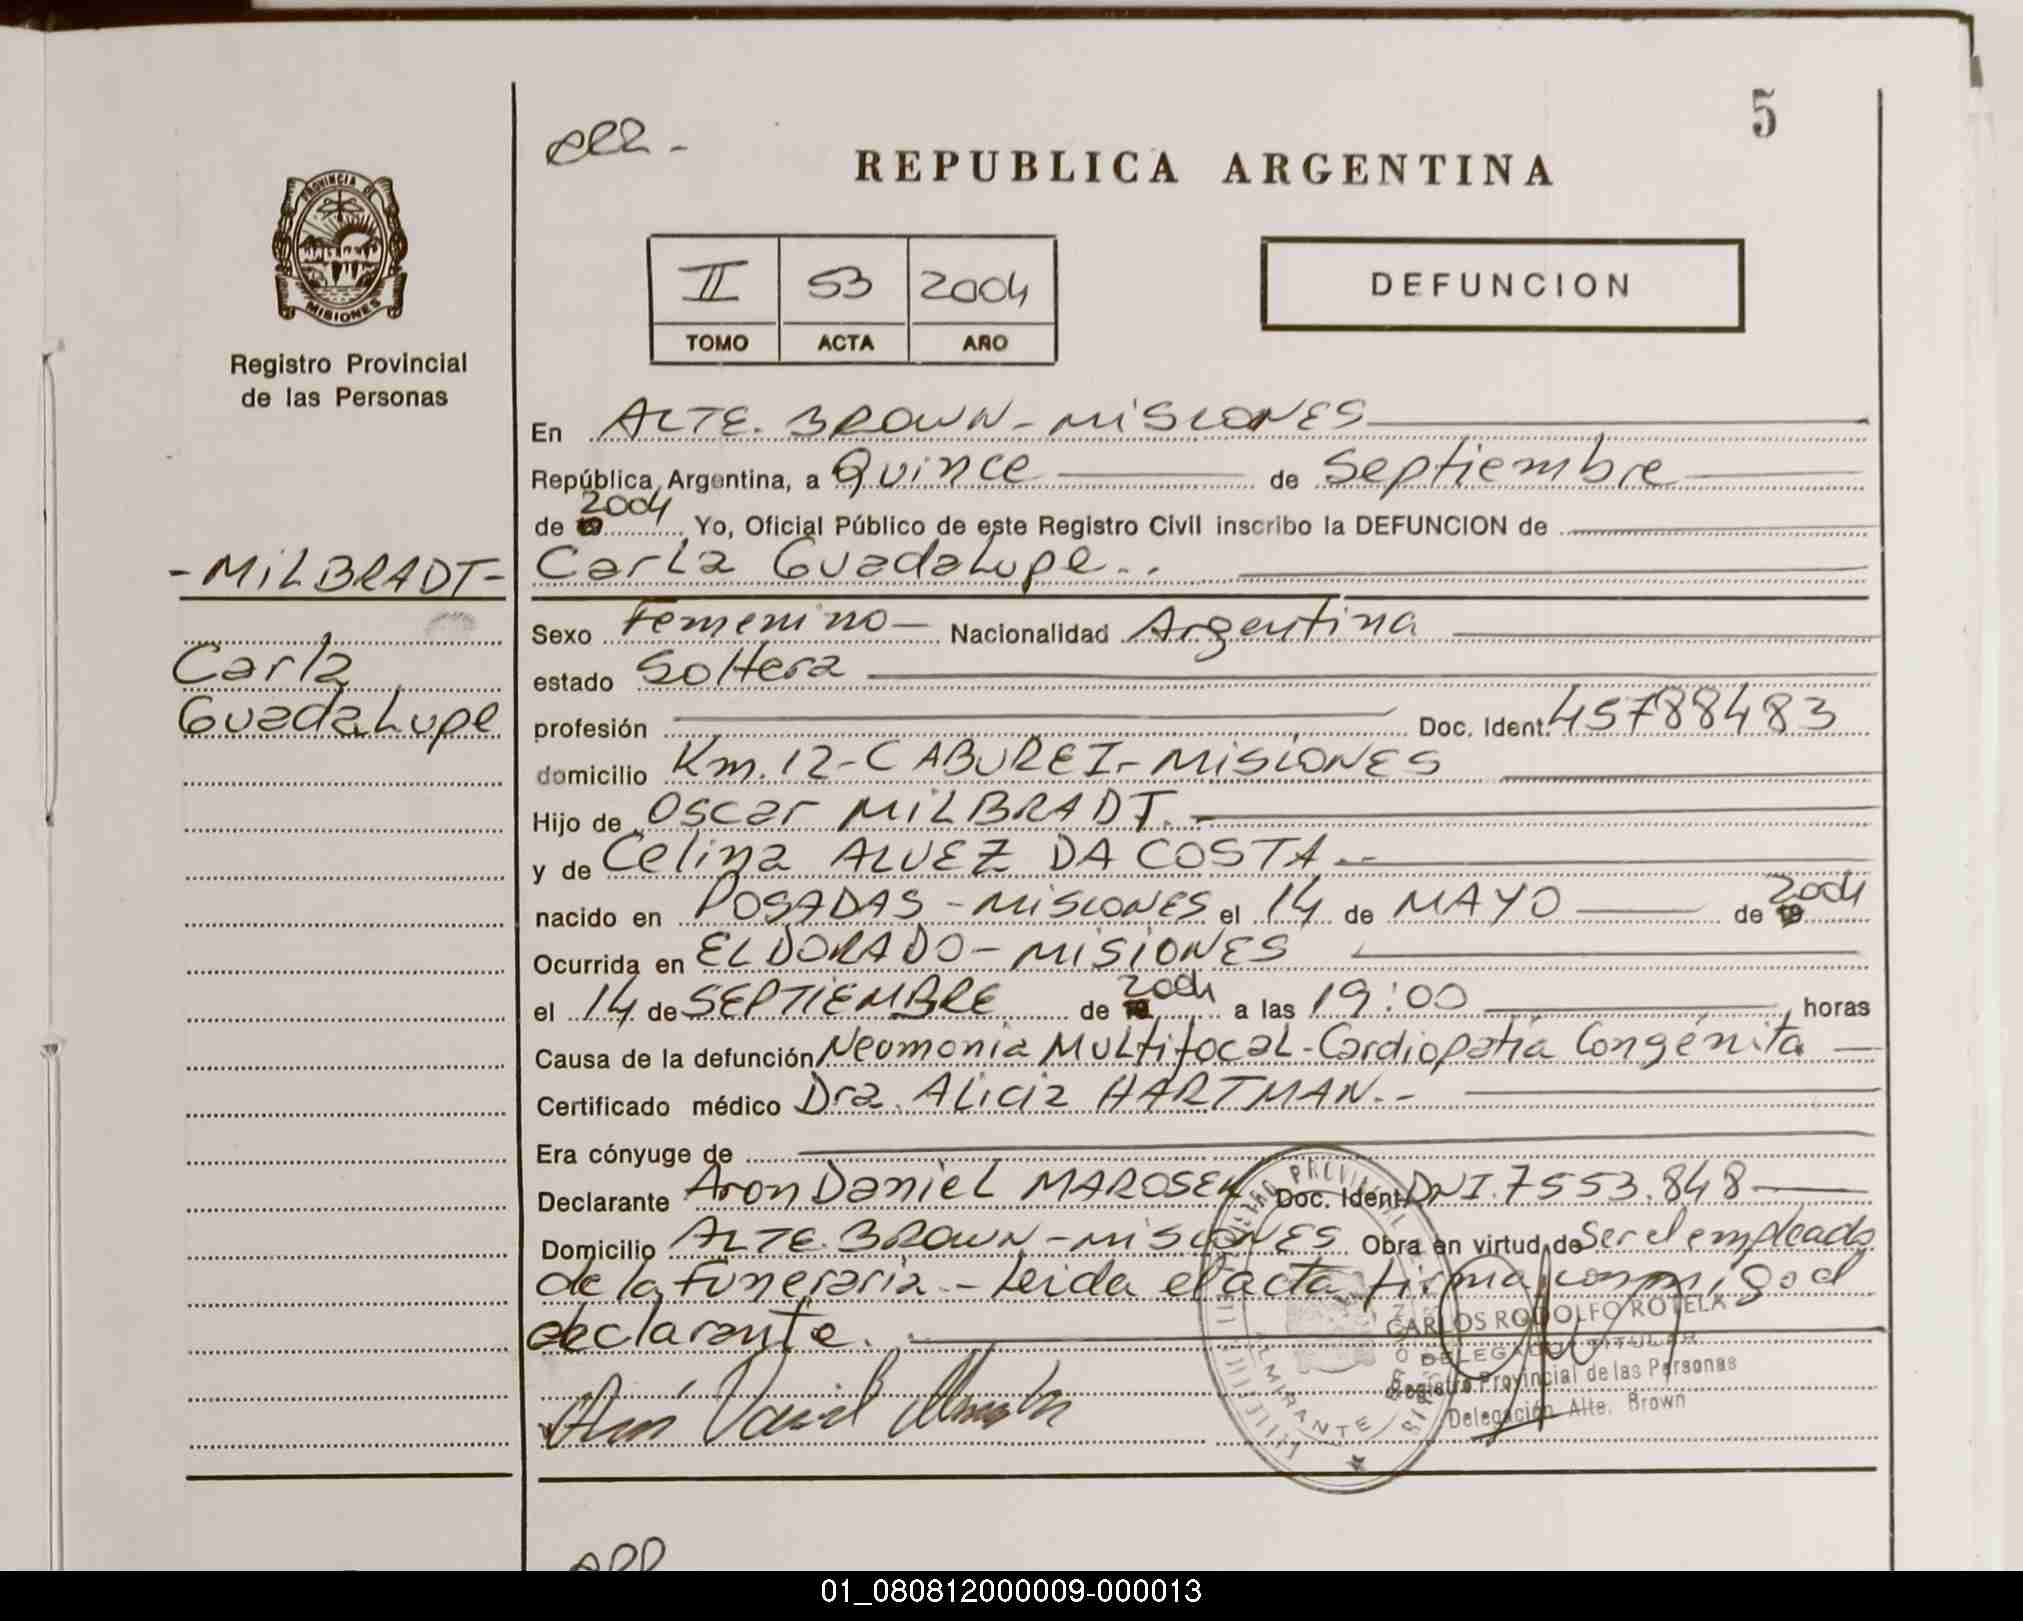 5
REPUBLICA ARGENTINA
PROVINCIA DE
MISIONES
Registro Provincial
de las Personas
II 53 2004
TOMO ACTA AÑO
DEFUNCION
En ALTE. BROWN - MISIONES
República Argentina, a Quince de Septiembre
de 19 2004 Yo, Oficial Público de este Registro Civil inscribo la DEFUNCION de
- MILBRADT -
Carla Guadalupe
Carla Guadalupe..
Sexo Femenino - Nacionalidad Argentina
estado Soltera
profesión Doc. Ident. 45788483
domicilio Km. 12 - CABUREI - MISIONES
Hijo de Oscar MILBRADT. -
y de Celina ALVEZ DA COSTA. -
nacido en POSADAS - MISIONES el 14 de MAYO de 19 2004
Ocurrida en ELDORADO - MISIONES
el 14 de SEPTIEMBRE de 19 2004 a las 19:00 horas
Causa de la defunción Neumonia Multifocal - Cardiopatía Congénita
Certificado médico Dra. Alicia HARTMAN. -
Era cónyuge de
Declarante Aron Daniel MAROSEK Doc. Ident. DNI. 7553.848
Domicilio ALTE. BROWN - MISIONES Obra en virtud de Ser el empleado
de la Funeraria. - Leida el acta firma conmigo el
declarante.
CARLOS RODOLFO ROTELA
DELEGADO TITULAR
Registro Provincial de las Personas
Delegación Alte. Brown
ALMIRANTE
01_080812000009-000013